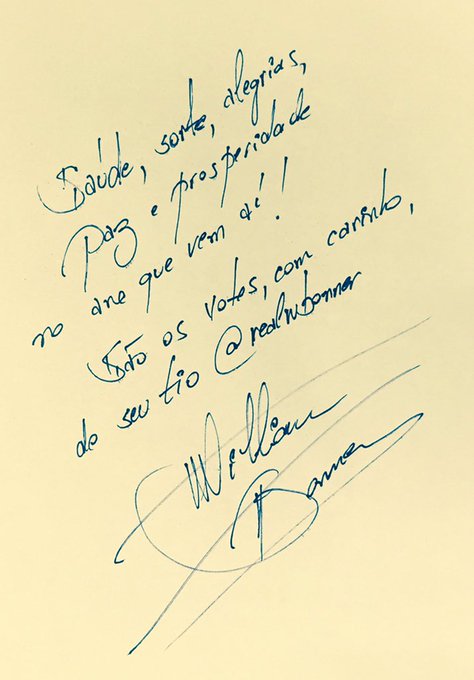 Saúde, sorte, alegrias,
Paz e prosperidade
no ano que vem aí!
São os votos, com carinho,
do seu tio @realwbonner
William
Bonner